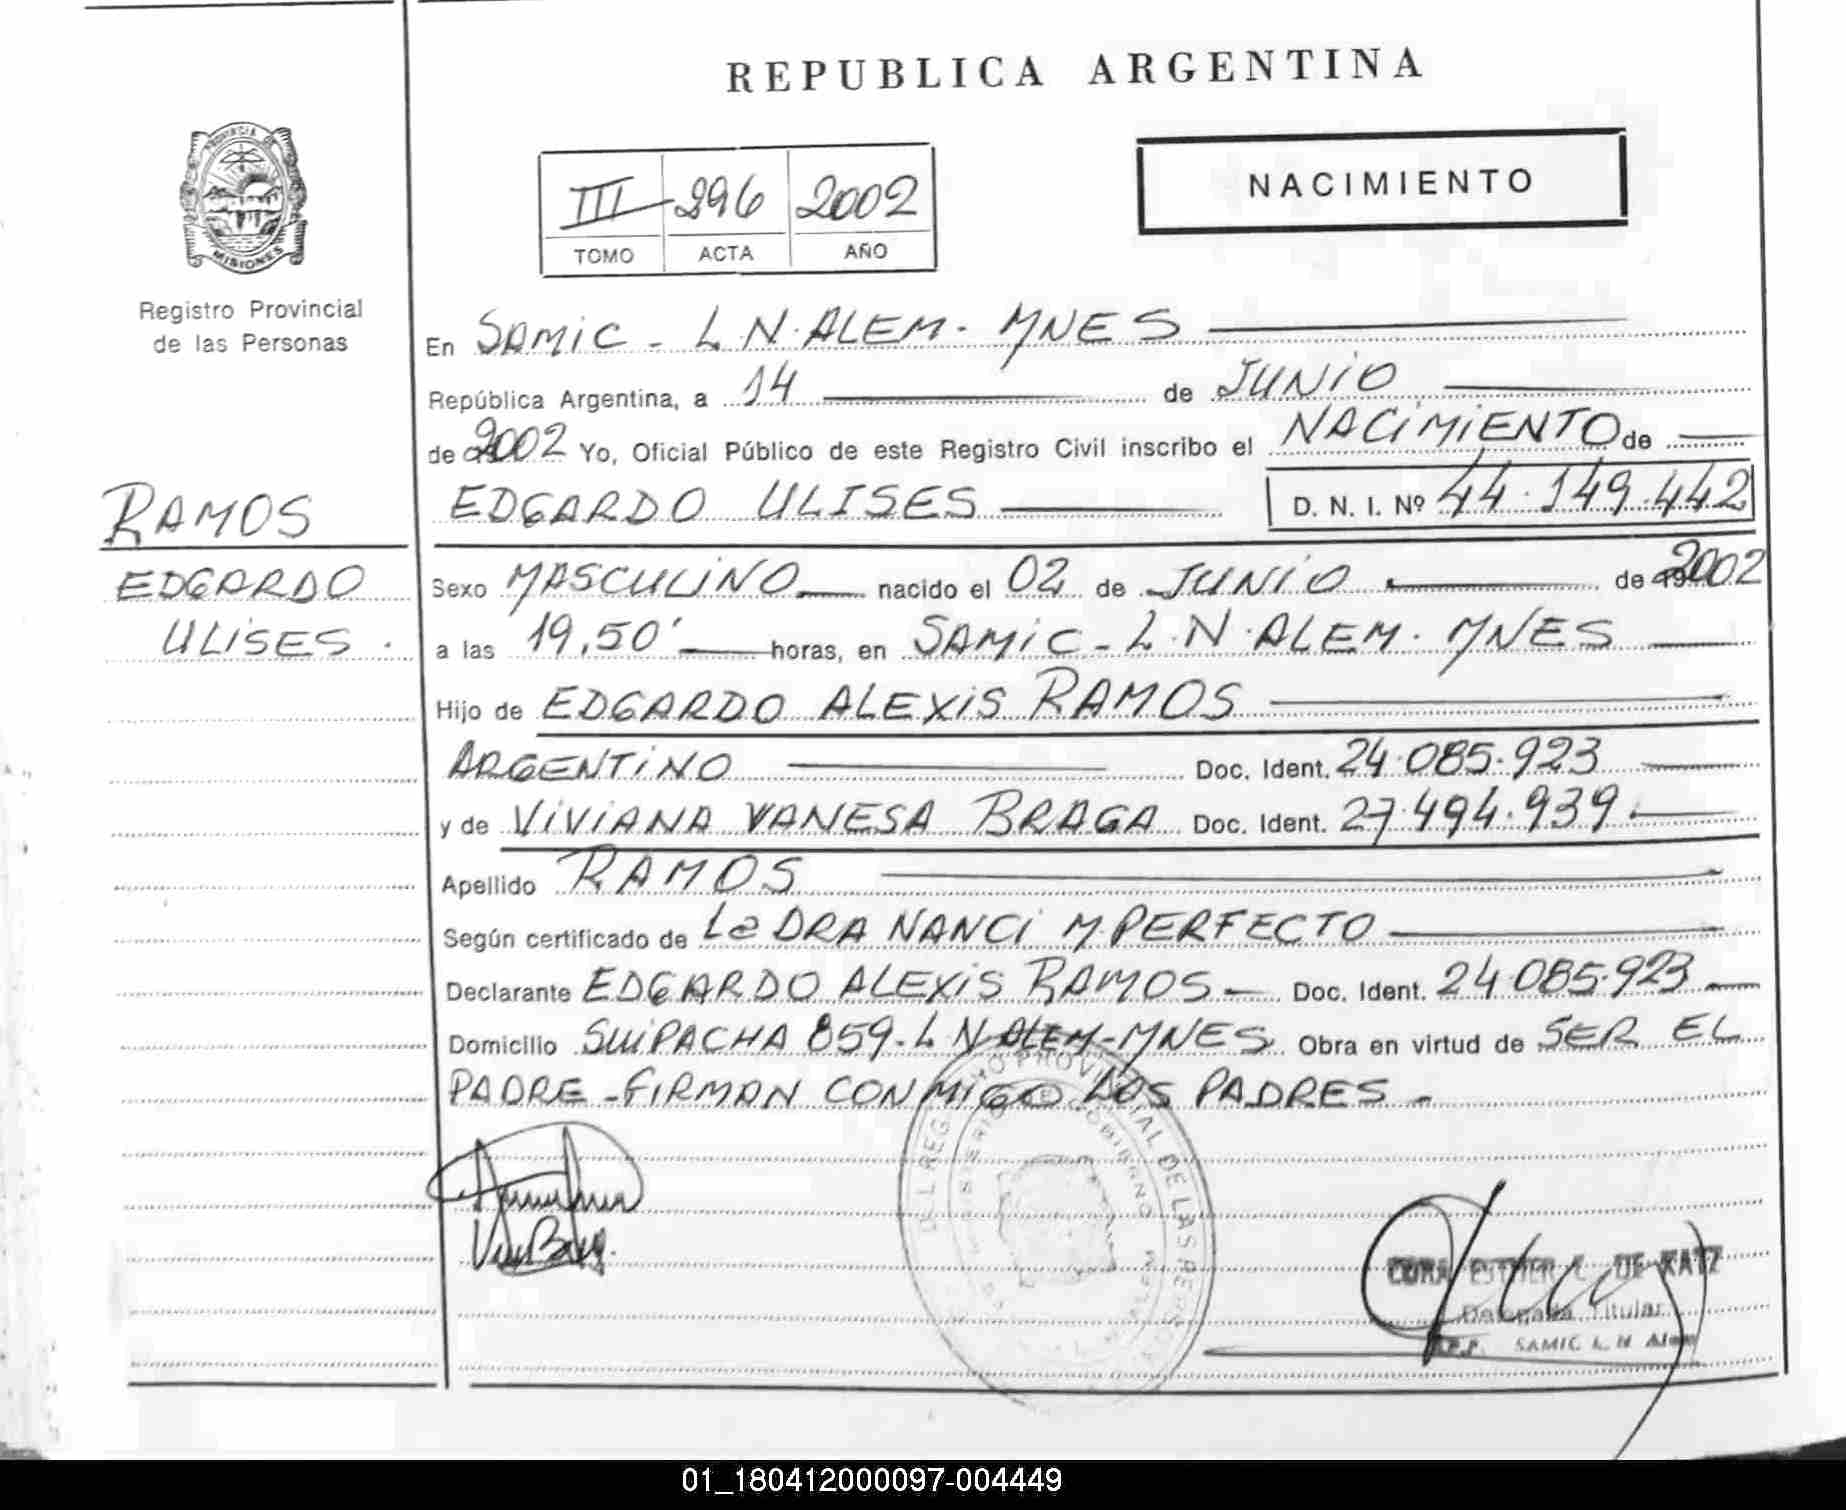 REPUBLICA ARGENTINA
PROVINCIA DE
MISIONES
Registro Provincial
de las Personas
III 296 2002
TOMO ACTA AÑO
NACIMIENTO
En SAMIC - L.N. ALEM - MNES
República Argentina, a 14 de JUNIO
de 2002 Yo, Oficial Público de este Registro Civil inscribo el NACIMIENTO de
RAMOS
EDGARDO
ULISES.
EDGARDO ULISES D. N. I. Nº 44.149.442
Sexo MASCULINO nacido el 02 de JUNIO de 2002
a las 19,50' horas, en SAMIC - L.N. ALEM. MNES
Hijo de EDGARDO ALEXIS RAMOS
ARGENTINO Doc. Ident. 24.085.923
y de VIVIANA VANESA BRAGA Doc. Ident. 27.494.939
Apellido RAMOS
Según certificado de La DRA NANCI M PERFECTO
Declarante EDGARDO ALEXIS RAMOS Doc. Ident. 24.085.923
Domicilio SUIPACHA 859 - L N ALEM - MNES Obra en virtud de SER EL
PADRE - FIRMAN CONMIGO LOS PADRES -
ESTHER C. DE KATZ
Delegada Titular
SAMIC L. N Alem
01_180412000097-004449